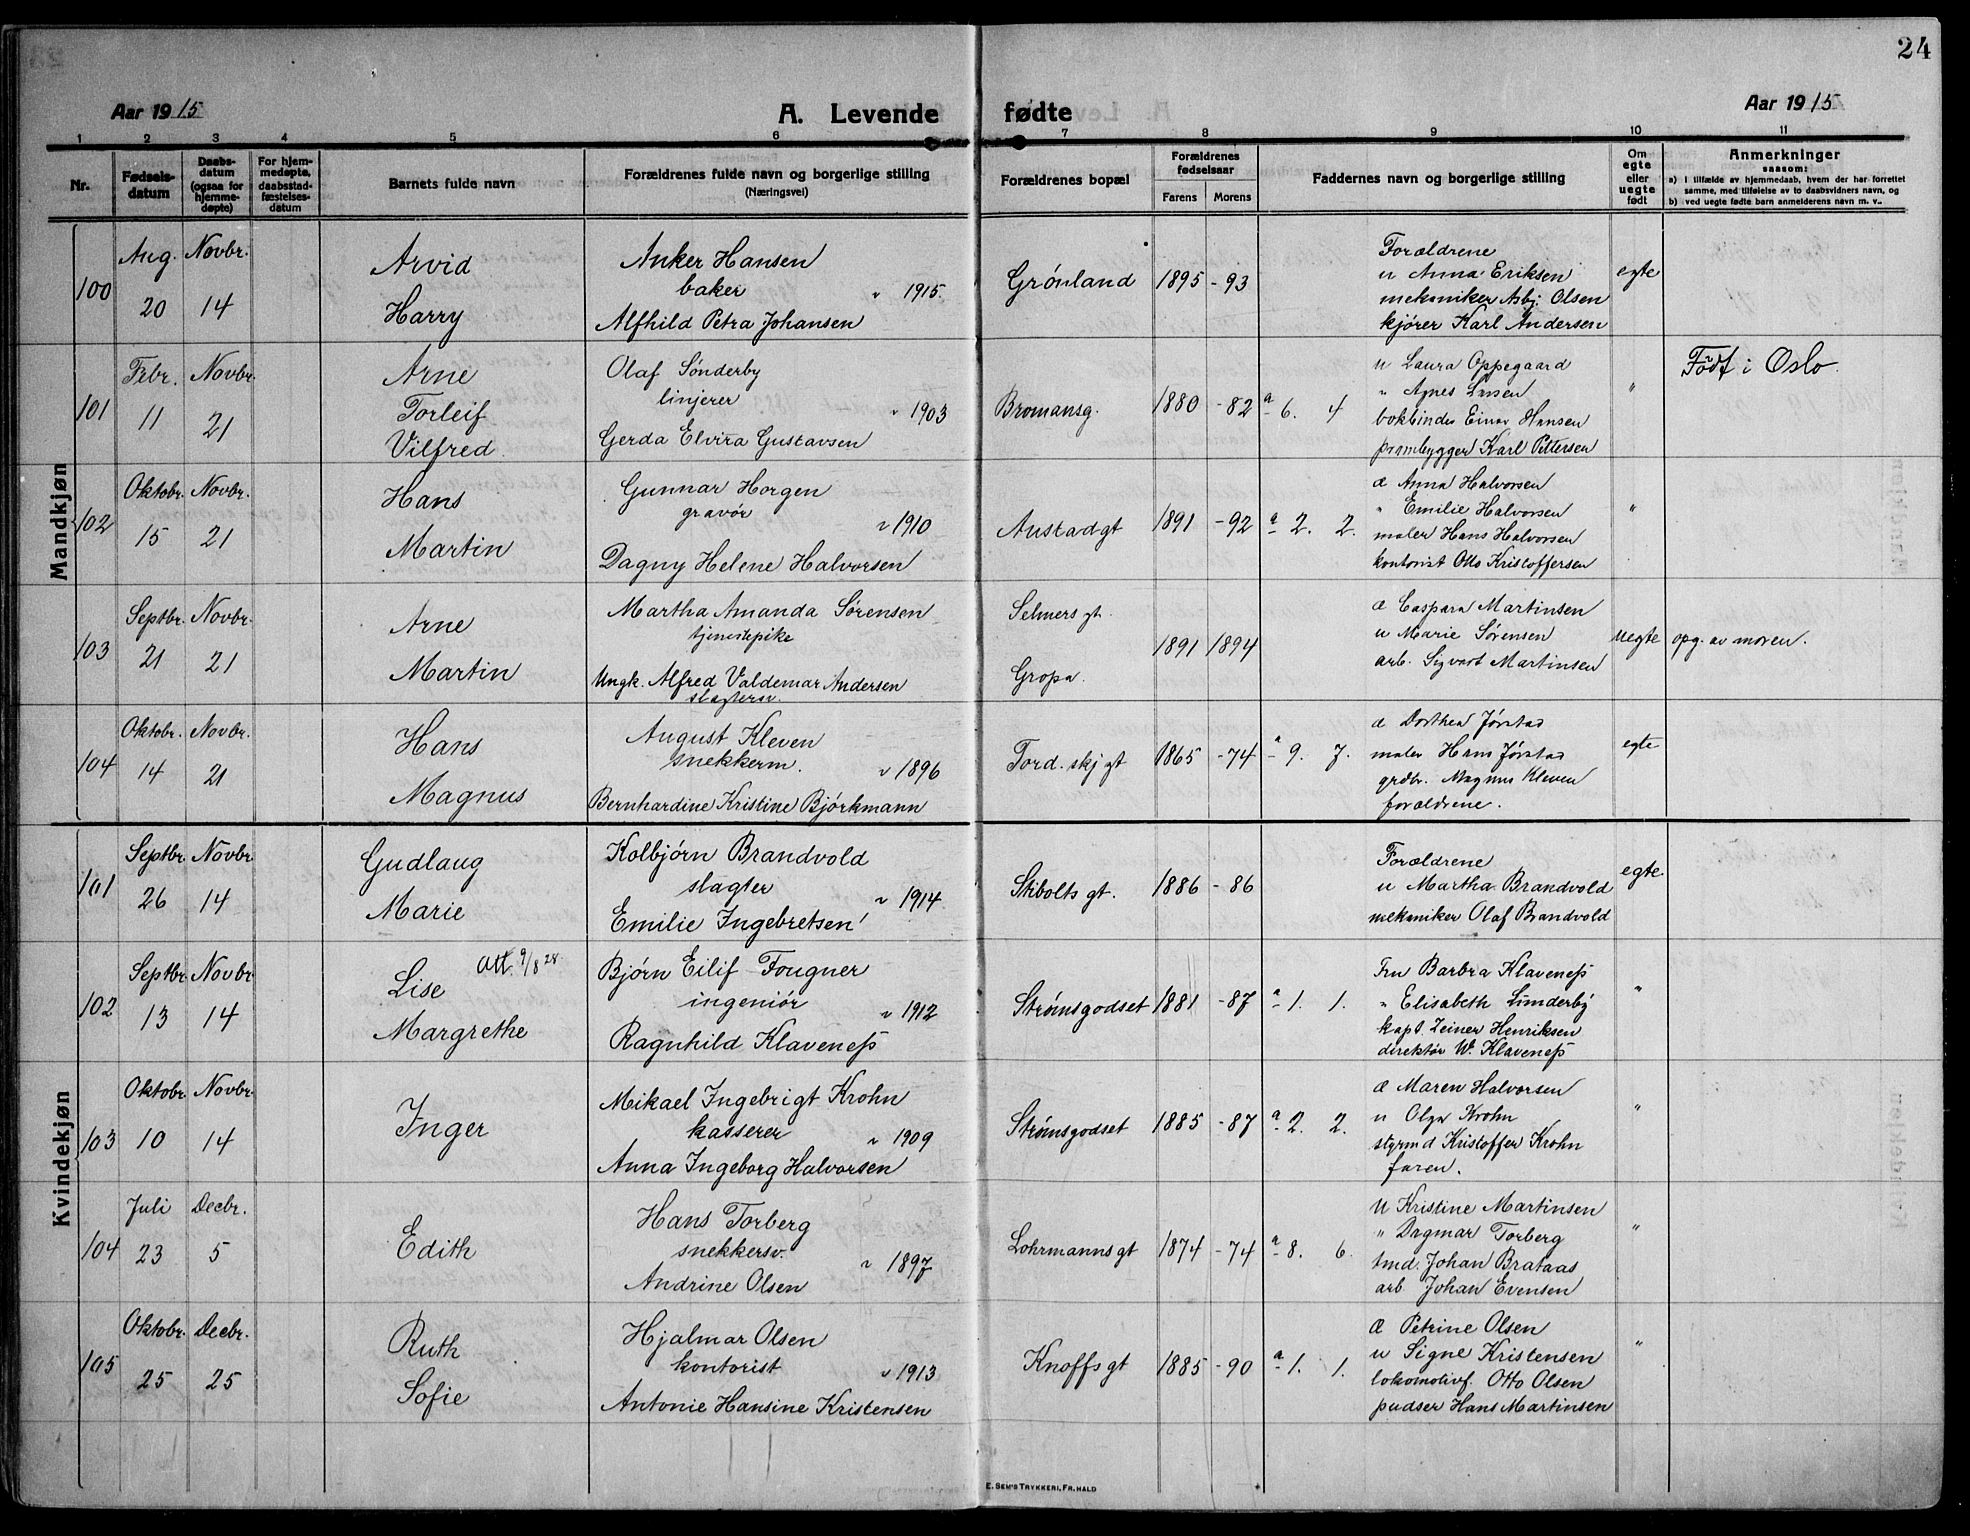 24
Aar 1915
A. Levende fødte
Aar 1915
1 2 3 4 5 6 7 8 9 10 11
Nr.
Fødselsdatum
Daabsdatum (ogsaa for hjemmedøpte)
For hjemmedøpte, daabsstadfæstelsesdatum
Barnets fulde navn
Forældrenes fulde navn og borgerlige stilling
(Næringsvei)
Forældrenes bopæl
Forældrenes fødselsaar
Farens Morens
Faddernes navn og borgerlige stilling
Om egte eller uegte født
Anmerkninger
saasom:
a) I tilfælde av hjemmedaab, hvem der har forrettet
samme, med tilføielse av to daabsvidners navn, og
b) ved uegte fødte barn anmelderens navn m. v..
Mandkjøn
100
Aug. 20
Novbr. 14
Arvid
Harry
Anker Hansen
baker " 1915.
Alfhild Petra Johansen
Grønland
1895 - 93
Forældrene
u Anna Eriksen
mekaniker Asbj. Olsen
kjører Karl Andersen
egte
101
Febr. 11
Novbr. 21
Arne
Torleif
Vilfred.
Olaf Sønderby
linjerer " 1903
Gerda Elvira Gustavsen
Bromansg.
1880 - 82 a 6. 4
u Laura Oppegaard
" Agnes
bokbinder Einar Hansen
prambygger Karl Pettersen
"
Født i Oslo.
102
Oktobr. 15
Novbr. 21
Hans
Martin
Gunnar Horgen
gravør " 1910
Dagny Helene Halvorsen
Austadgt
1891 - 92 a 2. 2.
Anna Halvorsen
" Emilie Halvorsen
maler Hans Halvorsen
kontorist Otto Kristoffersen
"
103
Septbr. 21
Novbr. 21
Arne
Martin
Martha Amanda Sørensen
tjenestepike
Ungk. Alfred Valdemar Andersen
slagtersv.
Selmers gt.
Gropa.
1891 1894
Caspara Martinsen
u Marie Sørensen
arb. Sigvart Martinsen
uegte
opg. av moren.
104
Oktobr. 14
Novbr. 21
Hans
Magnus
August Kleven
snekkerm. " 1896
Bernhardine Kristine Bjørkmann
Tord. skj gt
1865 - 74 a 9. 7.
Dorthea Jørstad
maler Hans Jørstad
grdbr. Magnus Kleven
forældrene.
egte
Kvindekjøn
101
Septbr. 26
Novbr. 14
Gudlaug
Marie
Kolbjørn Brandvold
slagter " 1914.
Emilie Ingebretsen
Stibolts gt.
1886 - 86
Forældrene
u Martha Brandvold
mekaniker Olaf Brandvold
egte
102
Septbr. 13
Novbr. 14
Att. 9/8 28.
Lise
Margrethe
Bjørn Eilif Fougner
ingeniør " 1912
Ragnhild Klaveness
Strømsgodset
1881 - 87 a 1. 1.
Fru Barbra Klaveness
" Elisabeth Lunderby
kapt. Zeiner Henriksen
direktør W. Klaveness
"
103
Oktobr. 10
Novbr. 14
Inger
Mikael Ingebrigt Krohn
kasserer " 1909
Anna Ingeborg Halvorsen
Strømsgodset
1885 - 87 a 2. 2.
Maren Halvorsen
u Olga Krohn
styrmd Kristoffer Krohn
faren.
"
104
Juli 23
Decbr. 5
Edith
Hans Torberg
snekkersv. " 1897
Andrine Olsen
Lohrmanns gt
1874 - 74 a 8. 6.
U Kristine Martinsen
" Dagmar Torberg
tmd. Johan Brataas
arb Johan Evensen
"
105
Oktobr. 25
Decbr. 25
Ruth
Sofie
Hjalmar Olsen
kontorist " 1913
Antonie Hansine Kristensen
Knoffs gt
1885 - 90 a 1. 1.
Petrine Olsen
u Signe Kristensen
lokomotivf. Otto Olsen
pudser Hans Martinsen
"
E. SEM'S TRYKKERI, FR.HALD